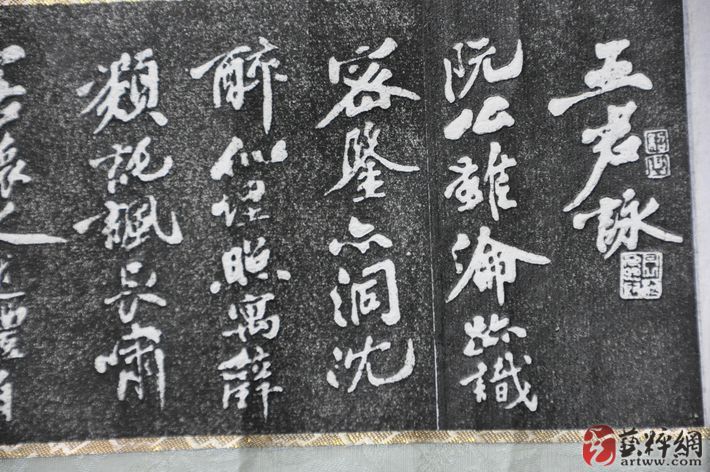 五君詠
阮公雖淪跡識
密鑒亦洞沈
醉似埋照寓辭
類託諷長嘯
若懷人越禮自
藝粹網
artww.com